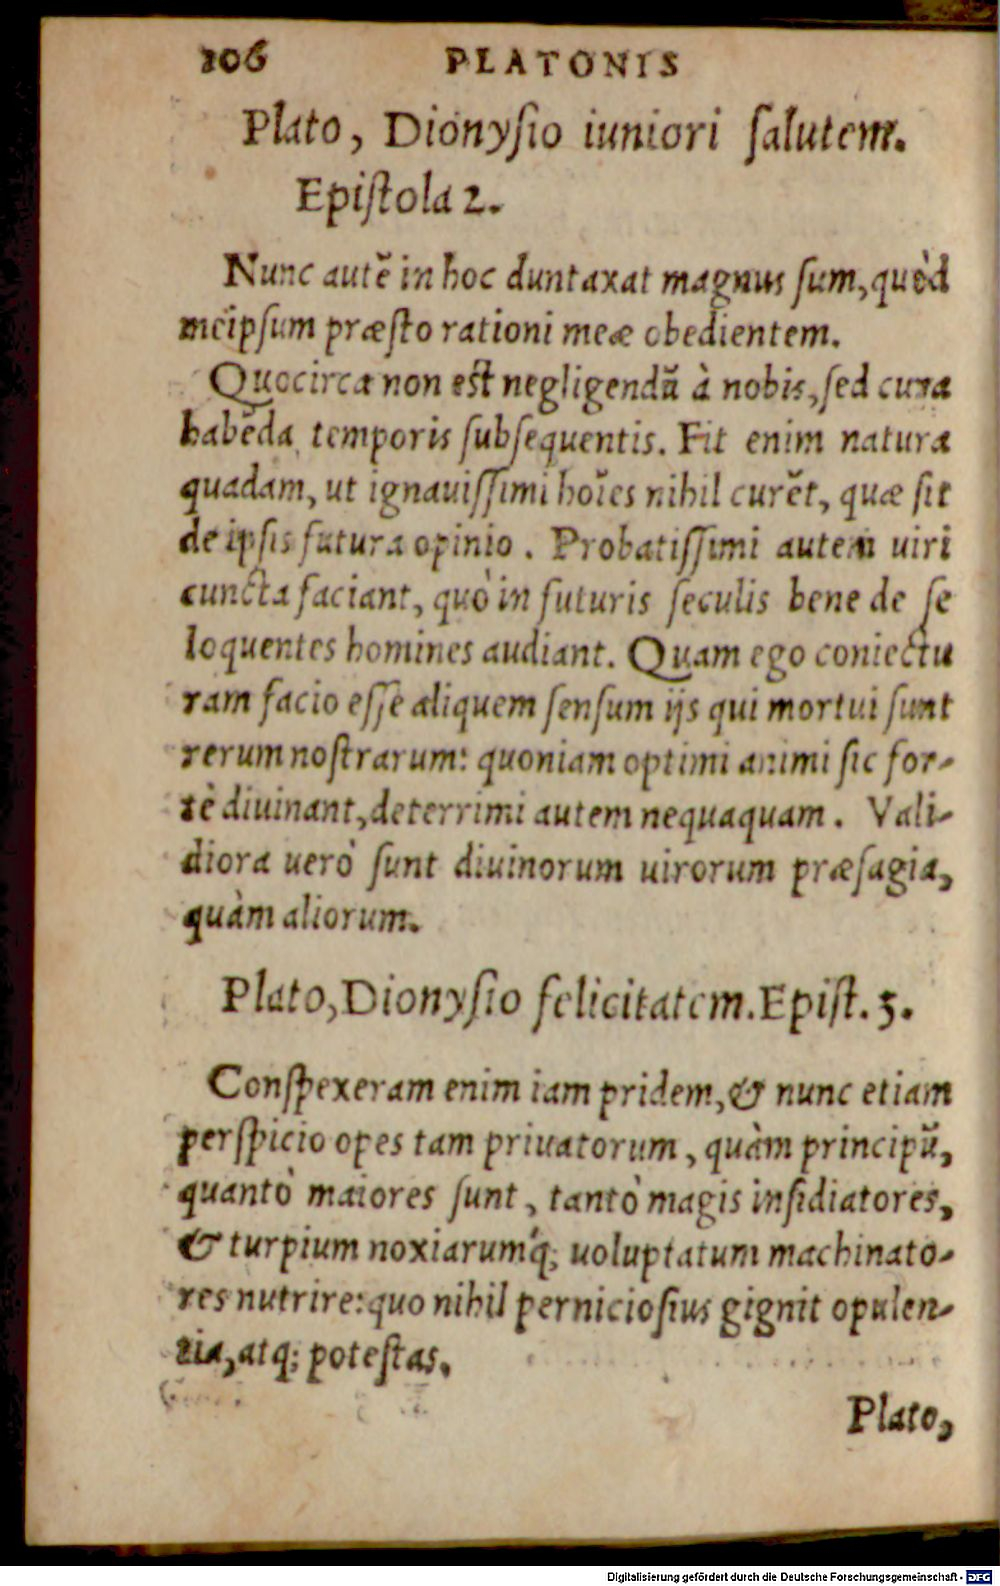 106 PLATONIS
Plato, Dionyſio iuniori ſalutem.
Epiſtola 2.
Nunc autē in hoc duntaxat magnus ſum, quòd
meipſum præſto rationi meæ obedientem.
Quocirca non eſt negligendū à nobis, ſed cura
habēda temporis ſubſequentis. Fit enim natura
quadam, ut ignauiſſimi hoīes nihil curēt, quæ ſit
de ipſis futura opinio. Probatiſſimi autem uiri
cuncta faciant, quò in futuris ſeculis bene de ſe
loquentes homines audiant. Quam ego coniectu
ram facio eſſe aliquem ſenſum ijs qui mortui ſunt
rerum noſtrarum: quoniam optimi animi ſic for-
tè diuinant, deterrimi autem nequaquam. Vali-
diora uerò ſunt diuinorum uirorum præſagia,
quàm aliorum.
Plato, Dionyſio felicitatem. Epiſt. 3.
Conſpexeram enim iam pridem, & nunc etiam
perſpicio opes tam priuatorum, quàm principū,
quantò maiores ſunt, tantò magis inſidiatores,
& turpium noxiarumq́; uoluptatum machinato-
res nutrire: quo nihil pernicioſius gignit opulen-
tia, atq; poteſtas.
Plato,
Digitalisierung gefördert durch die Deutsche Forschungsgemeinschaft - DFG